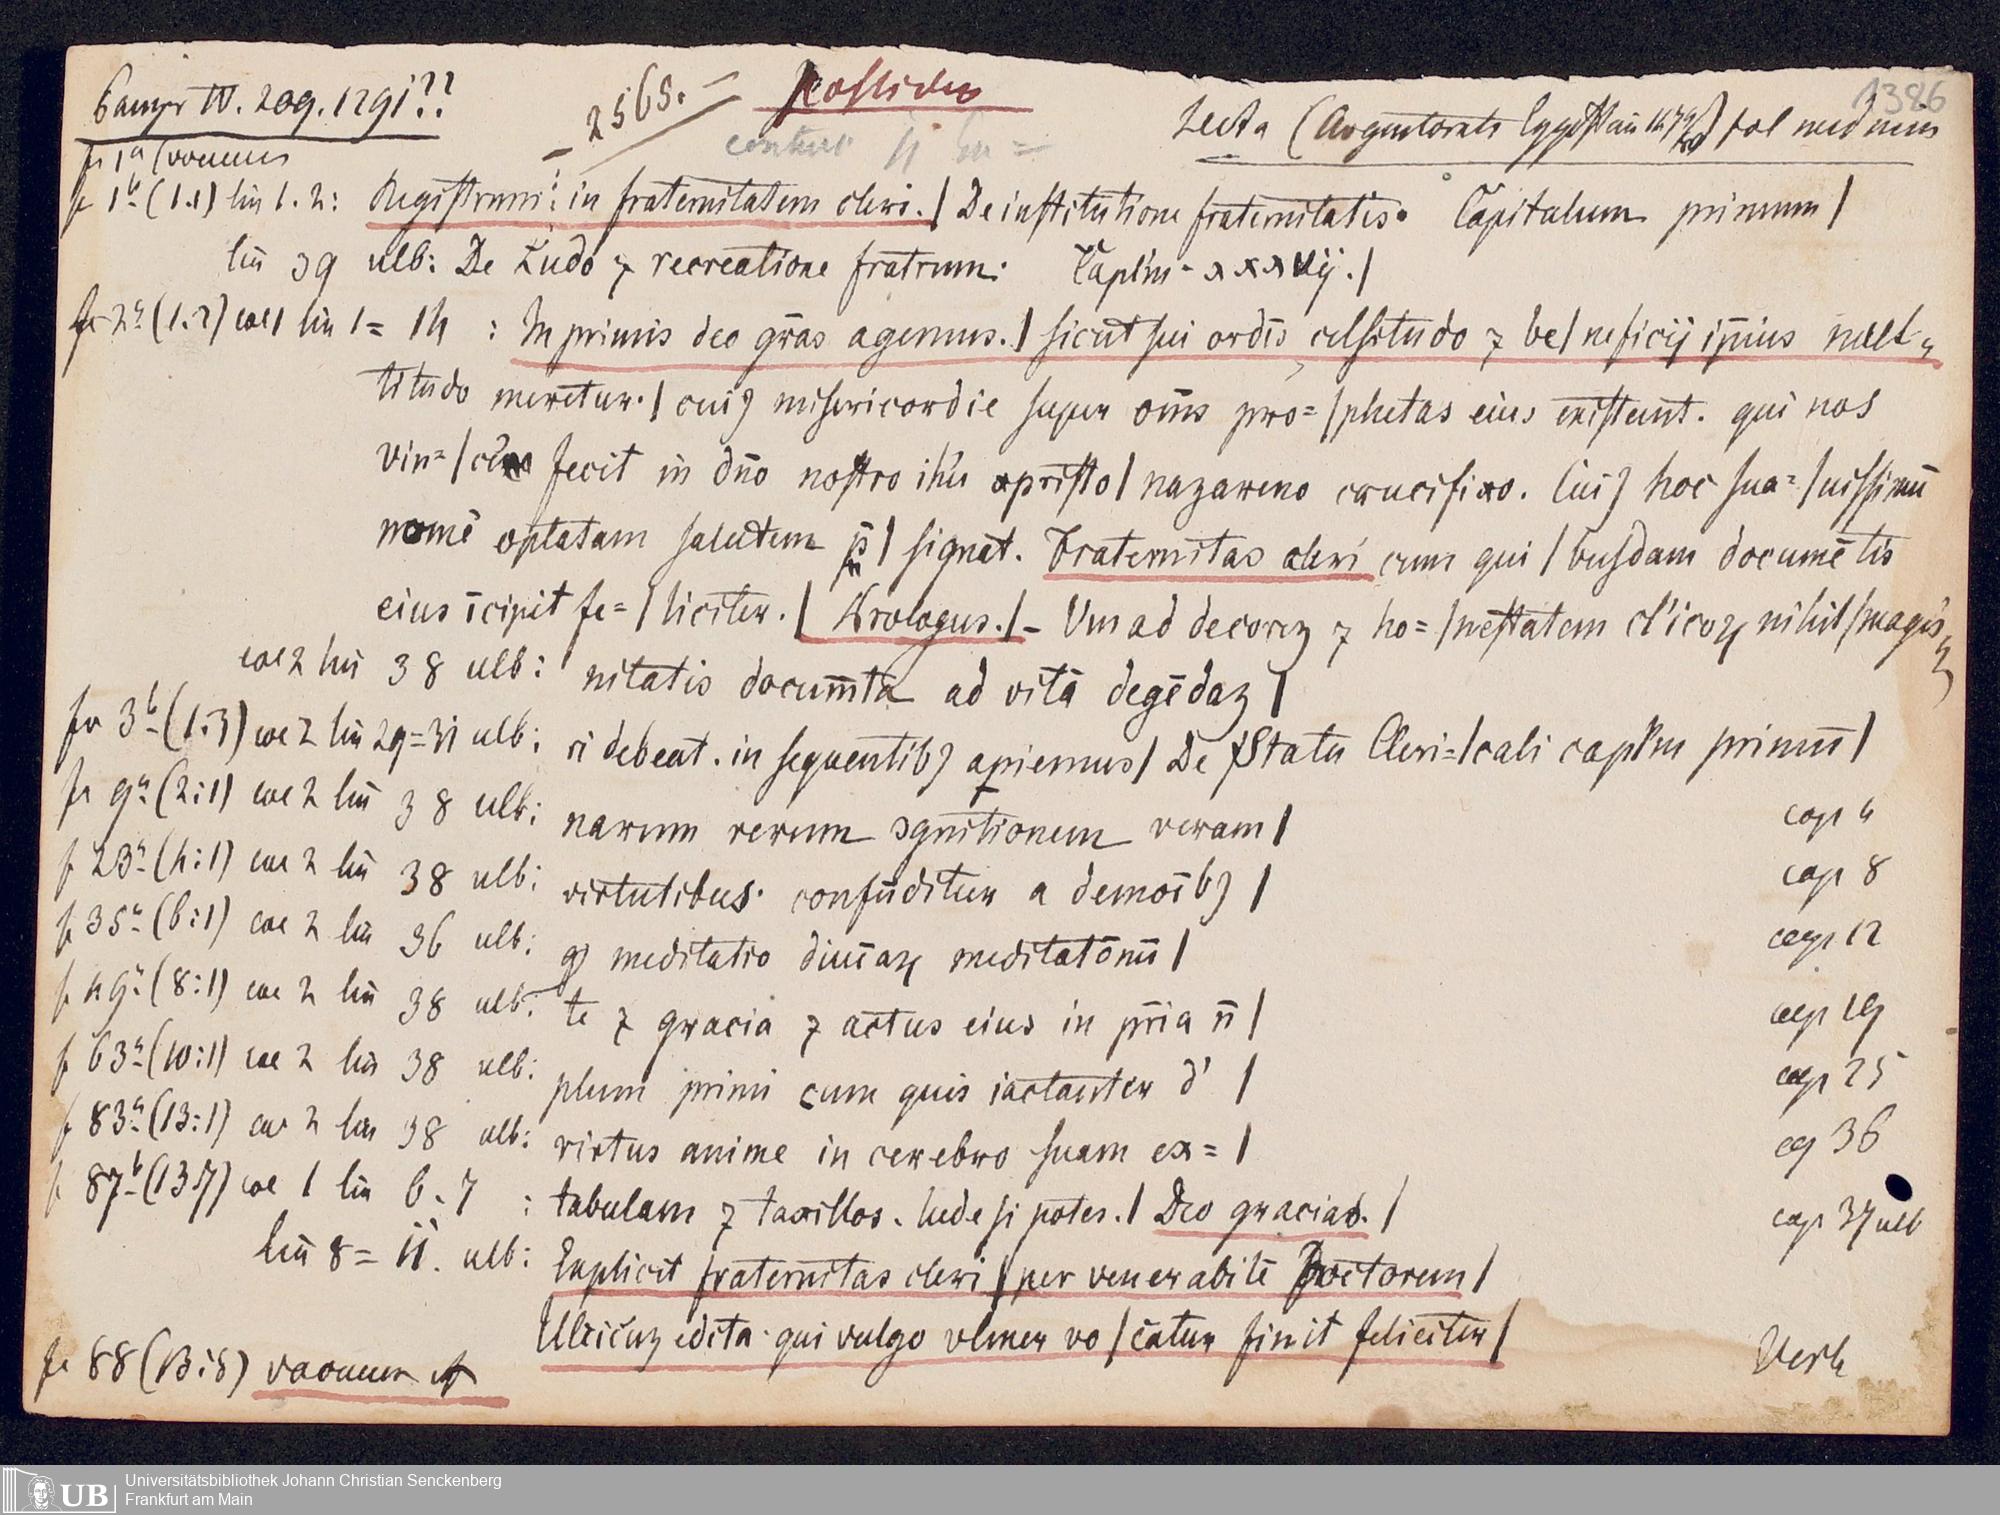 Panzer IV. 209. 1291??
2565. —
Possidet
1386
Lecta (Argentorati Eggesteÿn 1479) fol medium
f 1ª (vacuum
f 1ᵇ (1.1) lin 1. 2: Registrum: in fraternitatem cleri. | De institutione fraternitatis. Capitulum primum |
lin 39 ulb: De Ludo ⁊ recreatione fratrum: Caplm̄ xxxvij. |
f 2ª (1.2) col 1 lin 1 = 14 : In primis deo gr̄as agemus. | sicut sui ordīs celsitudo ⁊ be | neficij ip̄ius mult-
titudo meretur. | cuiꝫ misericordie super om̄s pro= | phetas eius existunt. qui nos
vin= | cere fecit in dn̄o nostro ihu xpristo | nazareno crucifixo. Cuiꝫ hoc sua= | uissimū
nomē optatam salutem p̄ | signat. Fraternitas cleri cum qui | busdam documētis
eius īcipit fe= | liciter. | Prologus. | — Um ad decorꝫ ⁊ ho= | nestatem cl'icoꝝ nihil | magis
col 2 lin 38 ulb: nitatis docum̄ta ad vitā degēdaꝫ |
f 3ᵇ (1.3) col 2 lin 29 = 31 ulb: ri debeat. in sequentibꝫ apiemus | De Statu Cleri= | cali caplm primū |
f 9ª (2:1) col 2 lin 38 ulb: narum rerum ɔgnitionem veram | cap 4
f 23ª (4:1) col 2 lin 38 ulb: virtutibus. confūditur a demoībꝫ | cap 8
f 35ª (6:1) col 2 lin 36 ulb: qꝫ meditatio diuīaꝝ meditatōnū | cap 12
f 49ª (8:1) col 2 lin 38 ulb: te ⁊ gracia ⁊ actus eius in pr̄ia n̄ | cap 19
f 63ª (10:1) col 2 lin 38 ulb: plum primi cum quis iactanter d' | cap 25
f 83ª (13:1) col 2 lin 38 ulb: virtus anime in cerebro suam ex= | cap 36
f 87ᵇ (13 7) col 1 lin 6. 7 : tabulam ⁊ taxillos. lude si potes. | Deo gracias. | cap 37 ulb
lin 8 = 11. ulb: Explicit fraternitas cleri | per venerabilē Doctorem |
Ulricūꝫ edita. qui vulgo vlmer vo | catur finit feliciter |
f 88 (13:8) vacuum